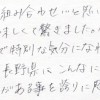 組み合わせいを外
味しくて驚きました。
で特別な気分になれ
長野県にこんなに
がある事を誇りに思